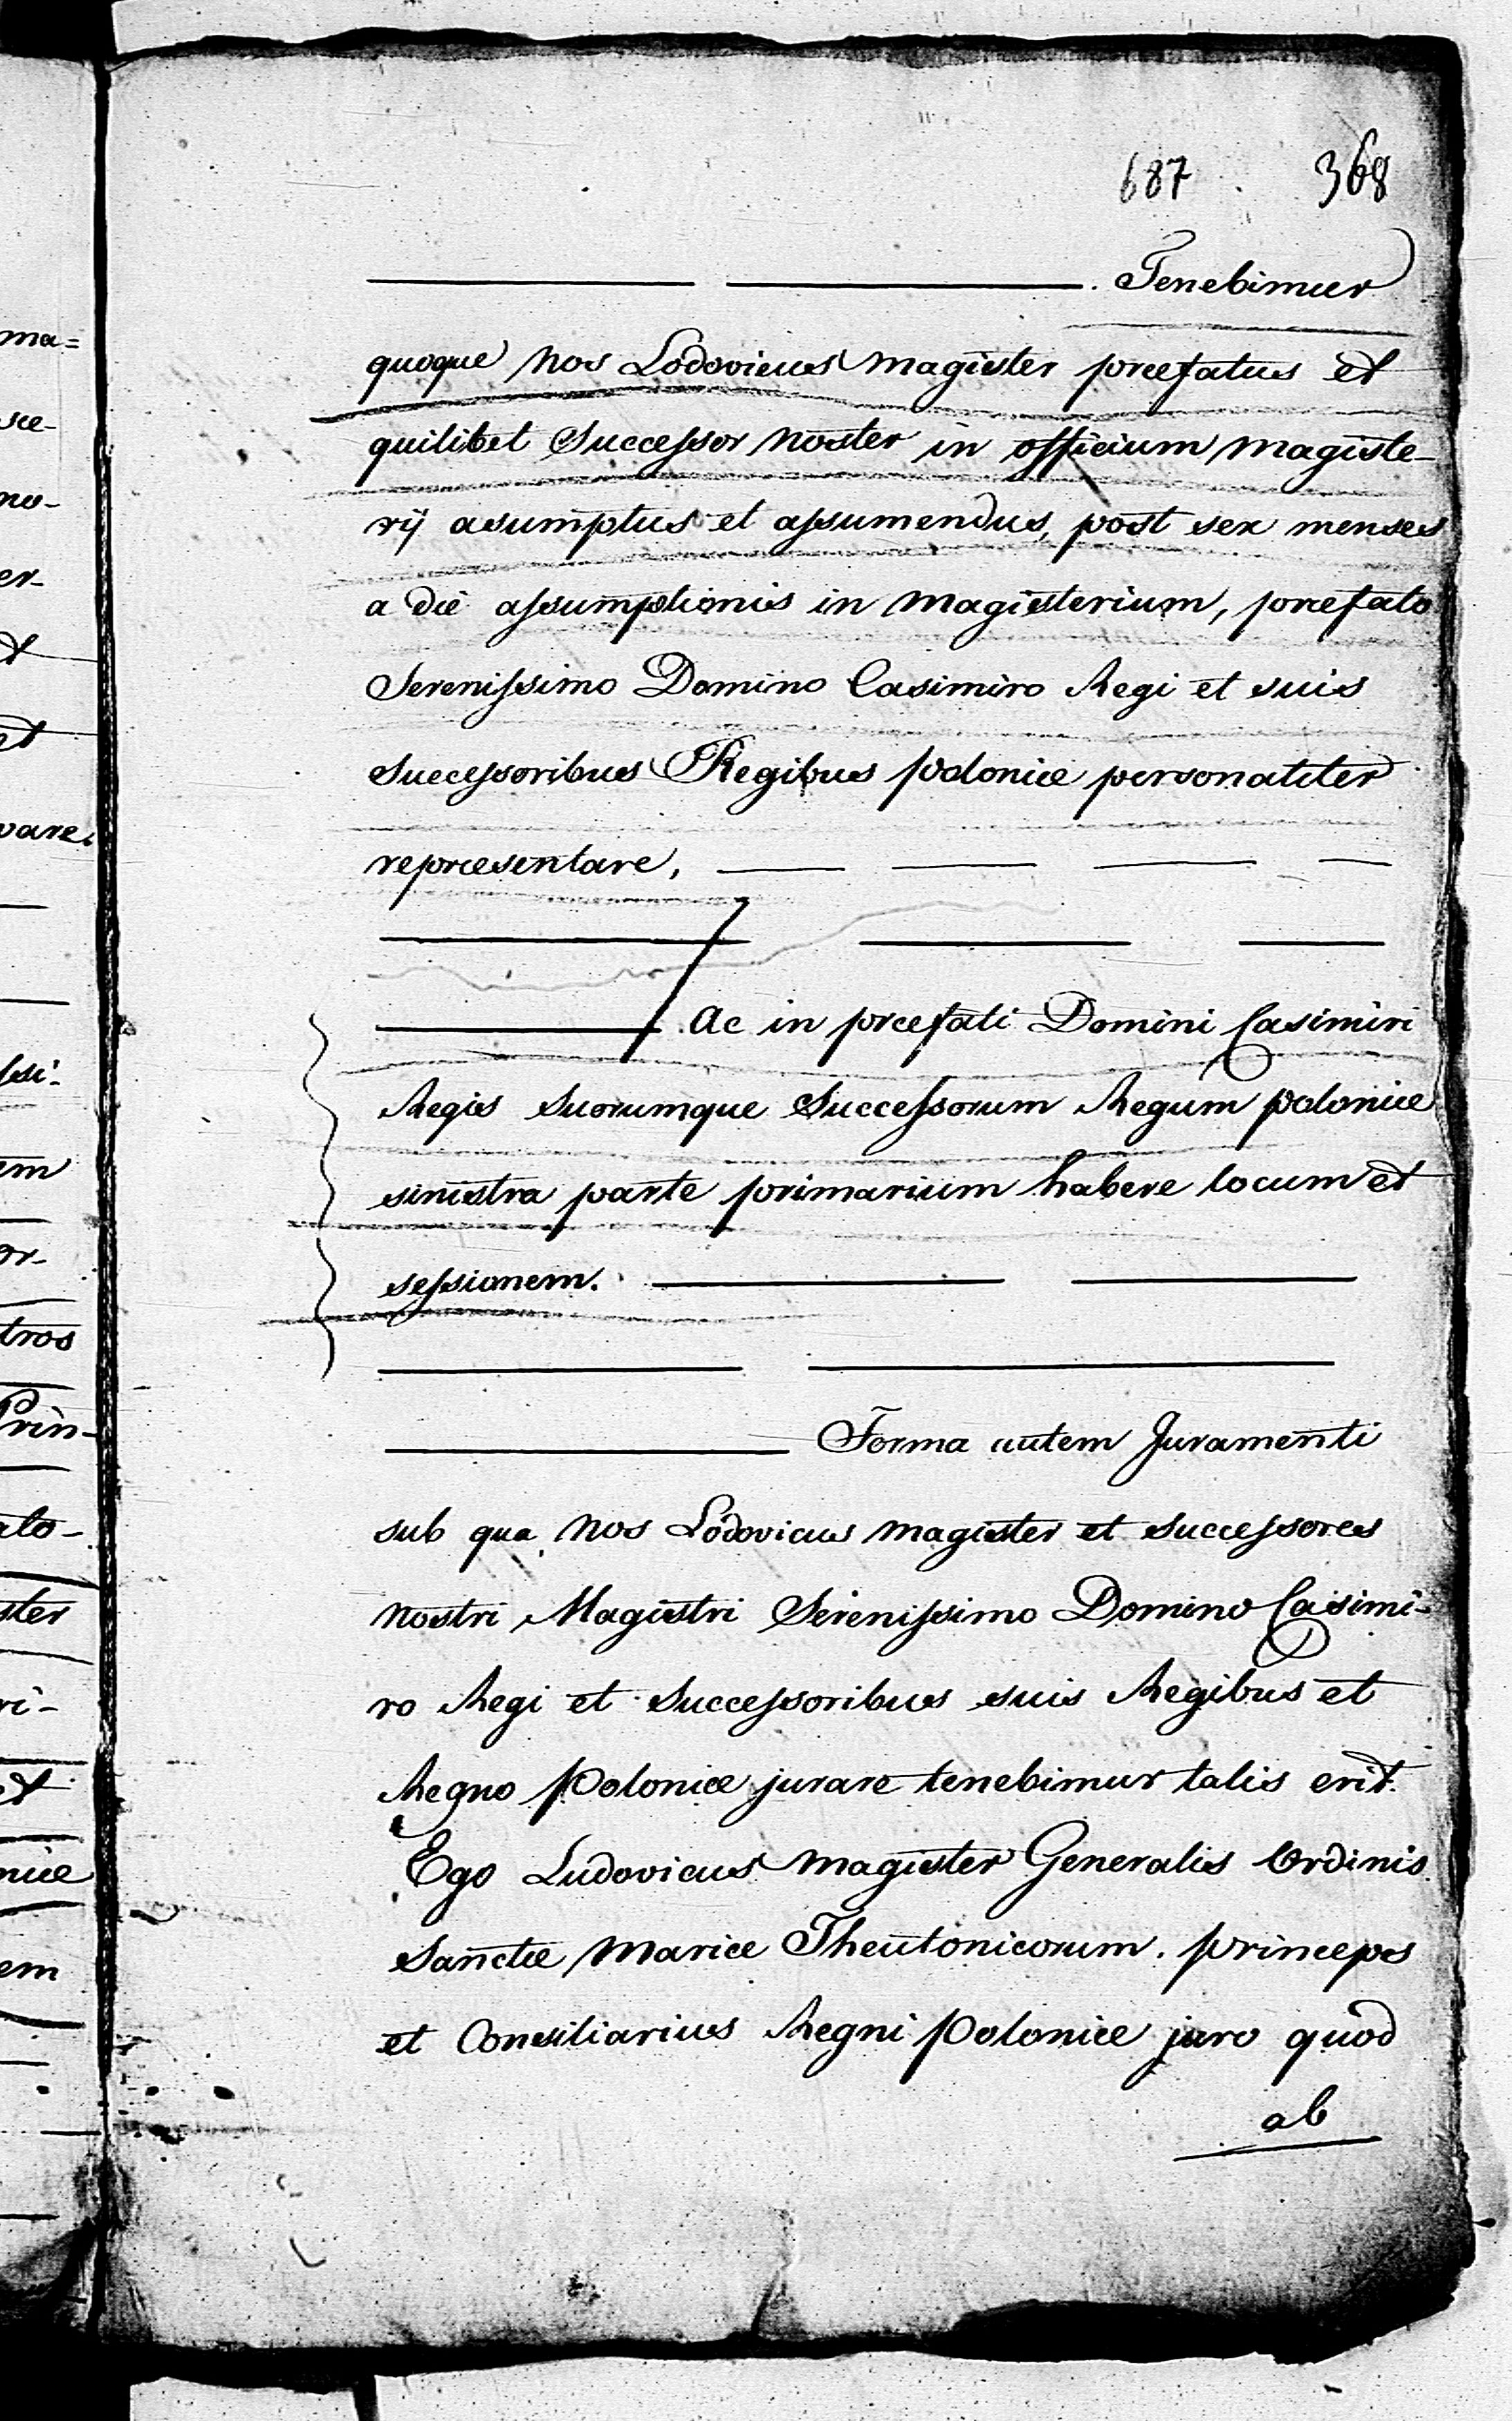 687 . 368
——— ———. Tenebimur
quoque nos Lodovicus magister præfatus et
quilibet Successor noster in officium magiste-
rij asumptus et assumendus, post sex menses
a die assumptionis in magisterium, præfato
Serenissimo Domino Casimiro Regi et suis
Successoribus Regibus poloniæ personaliter
repræsentare, — — — —
——— ——— ———
——— Ac in præfati Domini Casimiri
Regis suorumque Successorum Regum poloniæ
sinistra parte primarium habere locum et
sessionem. ——— ———
——— ———
——— Forma autem Juramenti
sub qua nos Lodovicus magister et successores
nostri Magistri Serenissimo Domino Casimi-
ro Regi et Successoribus suis Regibus et
Regno Poloniæ jurare tenebimur talis erit.
Ego Ludovicus magister Generalis Ordinis
Sanctæ Mariæ Theutonicorum. princeps
et Consiliarius Regni Poloniæ juro quod
ab
ma=
no-
er-
et
vare.
ssi-
em
or-
tros
Prin-
ato-
ster
ri-
et
niæ
em